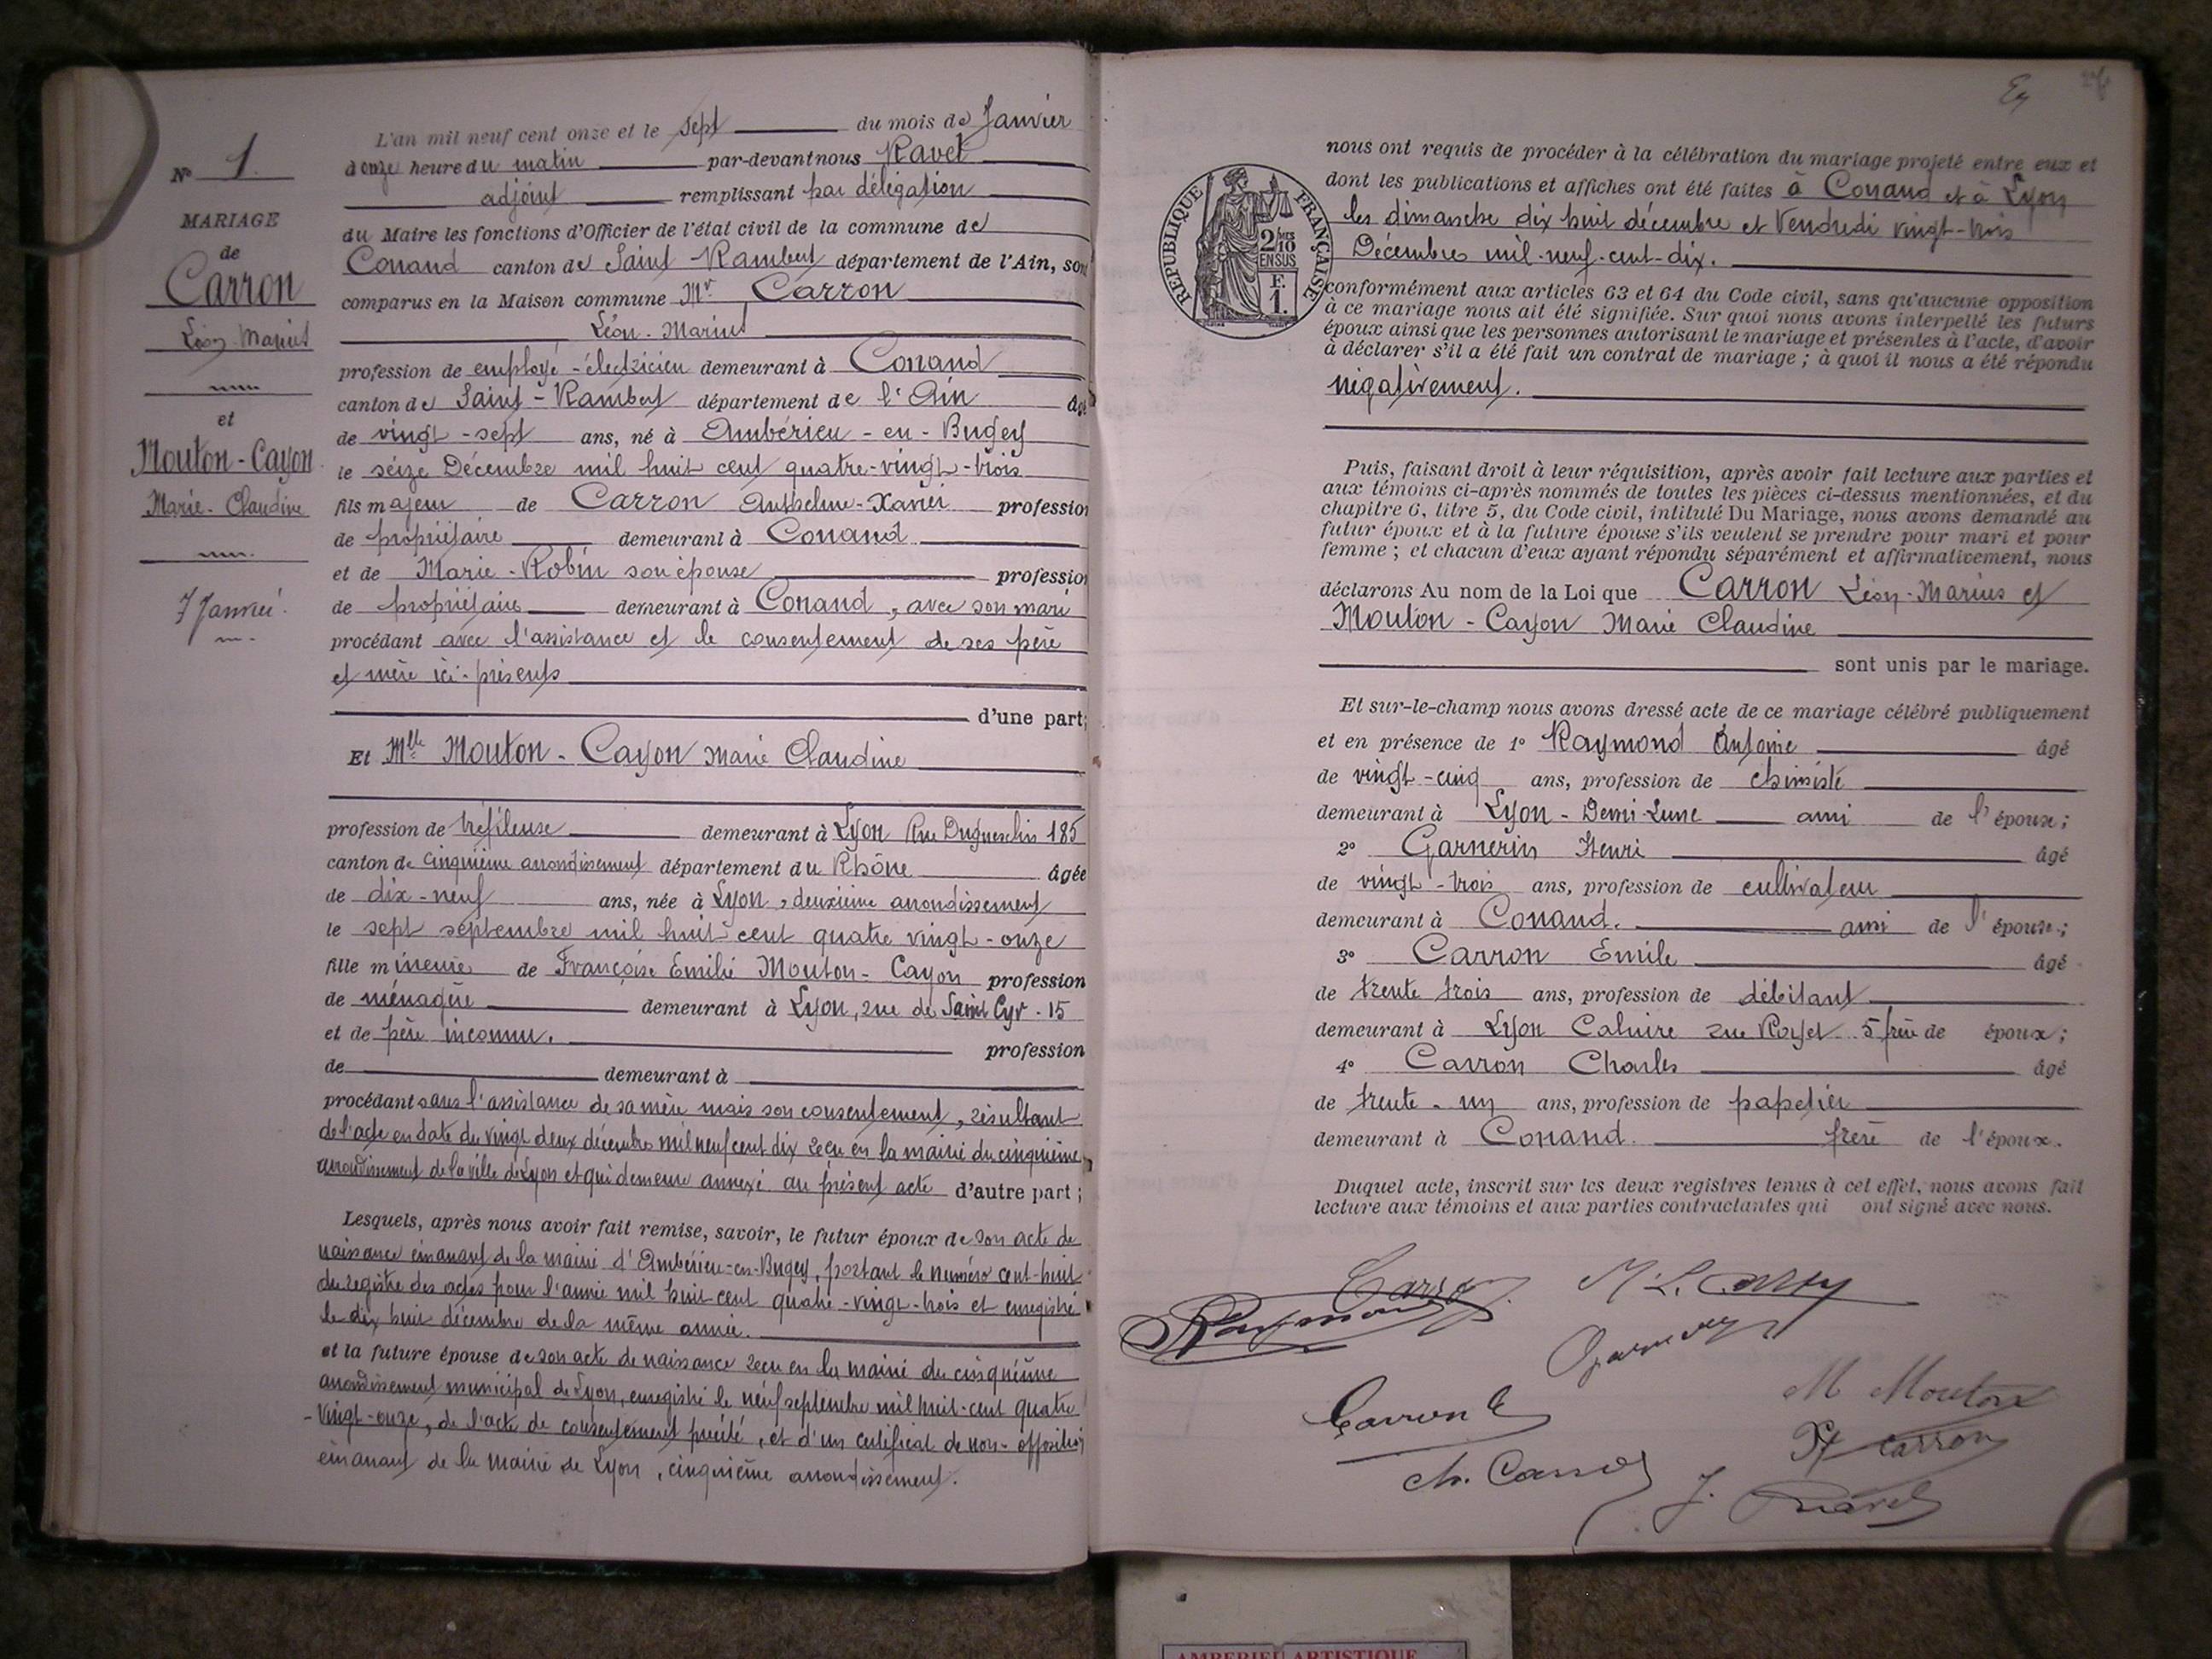 N° 1.
MARIAGE
de
Carron
Léon-Marius
et
Mouton-Cayon
Marie-Claudine
7 Janvier.
L'an mil neuf cent onze et le sept du mois de Janvier
onze heure du matin par-devant nous Ravet
adjoint remplissant par délégation
du Maire les fonctions d'Officier de l'état civil de la commune de
Conand canton de Saint-Rambert département de l'Ain, sont
comparus en la Maison commune Mr Carron
Léon-Marius
profession de employé-électricien demeurant à Conand
canton de Saint-Rambert département de l'Ain âgé
de vingt-sept ans, né à Ambérieu-en-Bugey
le seize Décembre mil huit cent quatre-vingt-trois
fils majeur de Carron Anthelme-Xavier profession
de propriétaire demeurant à Conand
et de Marie-Robin son épouse profession
de propriétaire demeurant à Conand, avec son mari
procédant avec l'assistance et le consentement de ses père
et mère ici-présents
d'une part;
Et Mlle Mouton-Cayon Marie Claudine
profession de tréfileuse demeurant à Lyon Rue Duguesclin 185
canton de cinquième arrondissement département du Rhône âgée
de dix-neuf ans, née à Lyon, deuxième arrondissement
le sept septembre mil huit cent quatre vingt-onze
fille mineure de Françoise Emilie Mouton-Cayon profession
de ménagère demeurant à Lyon, rue de Saint Cyr. 15
et de père inconnu. profession
de demeurant à
procédant sans l'assistance de sa mère mais son consentement, résultant
de l'acte en date du vingt deux décembre mil neuf cent dix reçu en la mairie du cinquième
arrondissement de la ville de Lyon et qui demeure annexé au présent acte d'autre part;
Lesquels, après nous avoir fait remise, savoir, le futur époux de son acte de
naissance émanant de la mairie d'Ambérieu-en-Bugey, portant le numéro cent-huit
du registre des actes pour l'année mil huit-cent quatre-vingt-trois et enregistré
le dix huit décembre de la même année.
et la future épouse de son acte de naissance reçu en la mairie du cinquième
arrondissement municipal de Lyon, enregistré le neuf septembre mil huit-cent quatre
-vingt-onze, de l'acte de consentement précité, et d'un certificat de non-opposition
émanant de la mairie de Lyon, cinquième arrondissement.
RÉPUBLIQUE FRANÇAISE
2/10 EN SUS
F. 1.
nous ont requis de procéder à la célébration du mariage projeté entre eux et
dont les publications et affiches ont été faites à Conand et à Lyon
les dimanche dix huit décembre et Vendredi vingt-trois
Décembre mil-neuf-cent-dix.
conformément aux articles 63 et 64 du Code civil, sans qu'aucune opposition
à ce mariage nous ait été signifiée. Sur quoi nous avons interpellé les futurs
époux ainsi que les personnes autorisant le mariage et présentes à l'acte, d'avoir
à déclarer s'il a été fait un contrat de mariage; à quoi il nous a été répondu
négativement.
Puis, faisant droit à leur réquisition, après avoir fait lecture aux parties et
aux témoins ci-après nommés de toutes les pièces ci-dessus mentionnées, et du
chapitre 6, titre 5, du Code civil, intitulé Du Mariage, nous avons demandé au
futur époux et à la future épouse s'ils veulent se prendre pour mari et pour
femme; et chacun d'eux ayant répondu séparément et affirmativement, nous
déclarons Au nom de la Loi que Carron Léon-Marius et
Mouton-Cayon Marie Claudine
sont unis par le mariage.
Et sur-le-champ nous avons dressé acte de ce mariage célébré publiquement
et en présence de 1° Raymond Antoine âgé
de vingt-cinq ans, profession de chimiste
demeurant à Lyon-Demi-Lune ami de l'époux;
2° Garnerin Henri âgé
de vingt-trois ans, profession de cultivateur
demeurant à Conand. ami de l'époux;
3° Carron Emile âgé
de trente trois ans, profession de débitant
demeurant à Lyon Caluire rue Royet 5 frère de époux;
4° Carron Charles âgé
de trente-un ans, profession de papetier
demeurant à Conand. frère de l'époux.
Duquel acte, inscrit sur les deux registres tenus à cet effet, nous avons fait
lecture aux témoins et aux parties contractantes qui ont signé avec nous.
Carron
Raymond
Carron E
M Mouton
X Carron
Ch. Carron
J. Ravet
AMBERIEU ARTISTIQUE